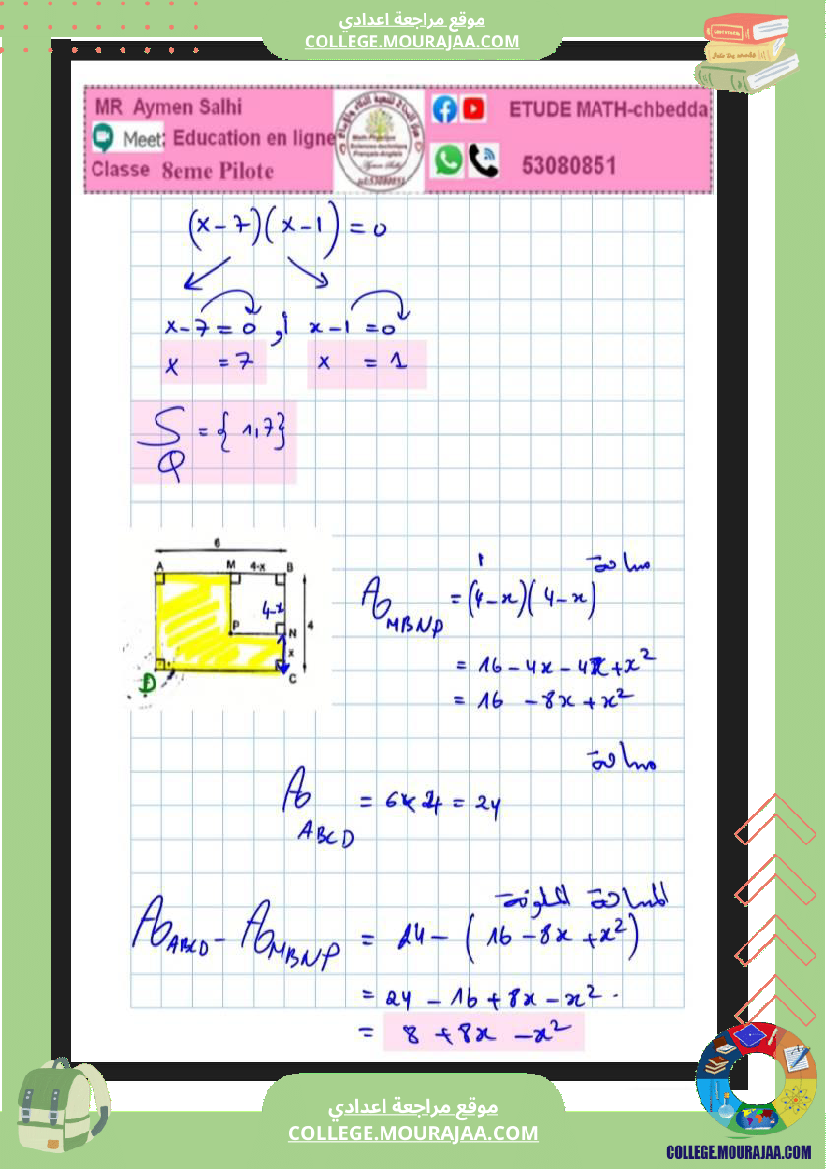 موقع مراجعة اعدادي
COLLEGE.MOURAJAA.COM
MR Aymen Salhi
Meet: Education en ligne
Classe 8eme Pilote
ETUDE MATH-chbedda
53080851
(x-7)(x-1)=0
x-7=0 أو x-1=0
x =7 x =1
S = {1,7}
Q
6
A M 4-x B
4-x 4
P N
x
D C
مساحة
𝒜 MBNP = (4-x)(4-x)
= 16-4x-4x+x²
= 16 -8x+x²
مساحة
𝒜 ABCD = 6×4=24
المساحة الملونة
𝒜 ABCD - 𝒜 MBNP = 24-(16-8x+x²)
= 24-16+8x-x²
= 8+8x-x²
موقع مراجعة اعدادي
COLLEGE.MOURAJAA.COM
COLLEGE.MOURAJAA.COM